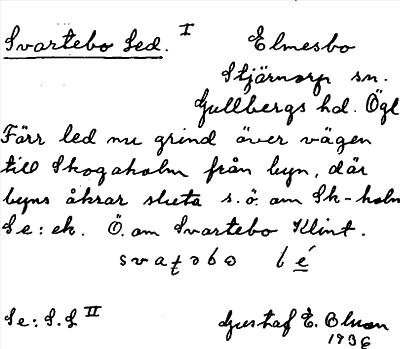 Svartebo Led. I Elmesbo
Stjärnorp sn.
Gullbergs hd. Ögl
Förr led nu grind över vägen
till Skogaholm från byn, där
byns åkrar sluta s.ö. om Sk-holm
Se: ek. Ö. om Svartebo Klint.
svaṭəbo lé
Se: S.S II Gustaf E. Olson
1936